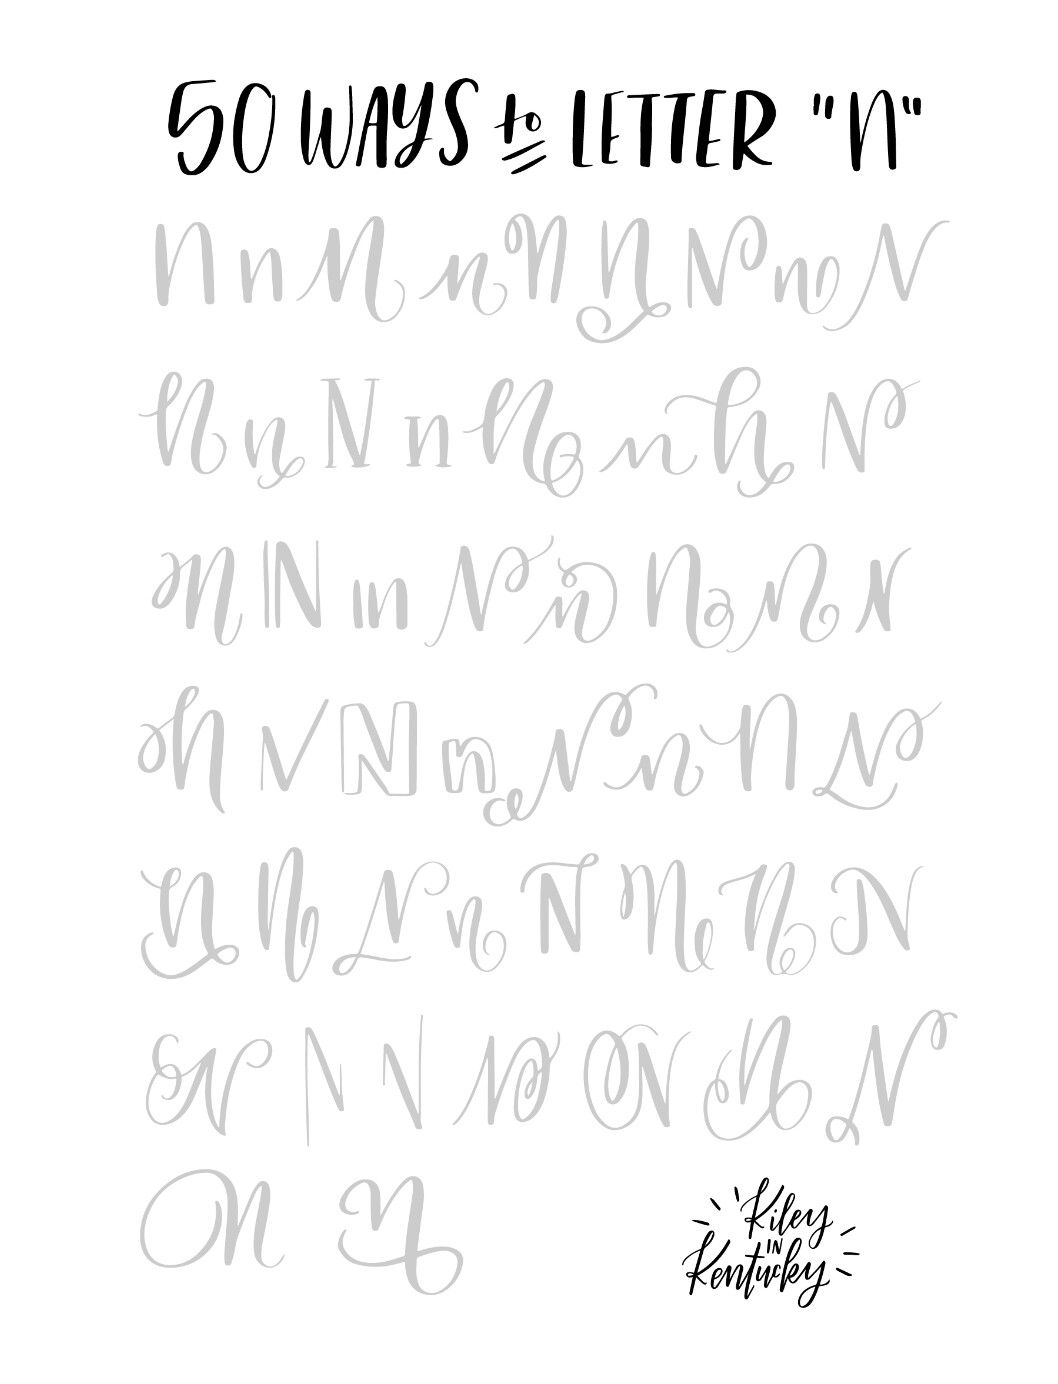 50 WAYS to LETTER "N"
N n N n N N N n N
N n N n N n N N
N N n N n N N N
N N N n N n N N
N N N n N N N N
N N N N N N N
N N
Kiley
IN
Kentucky